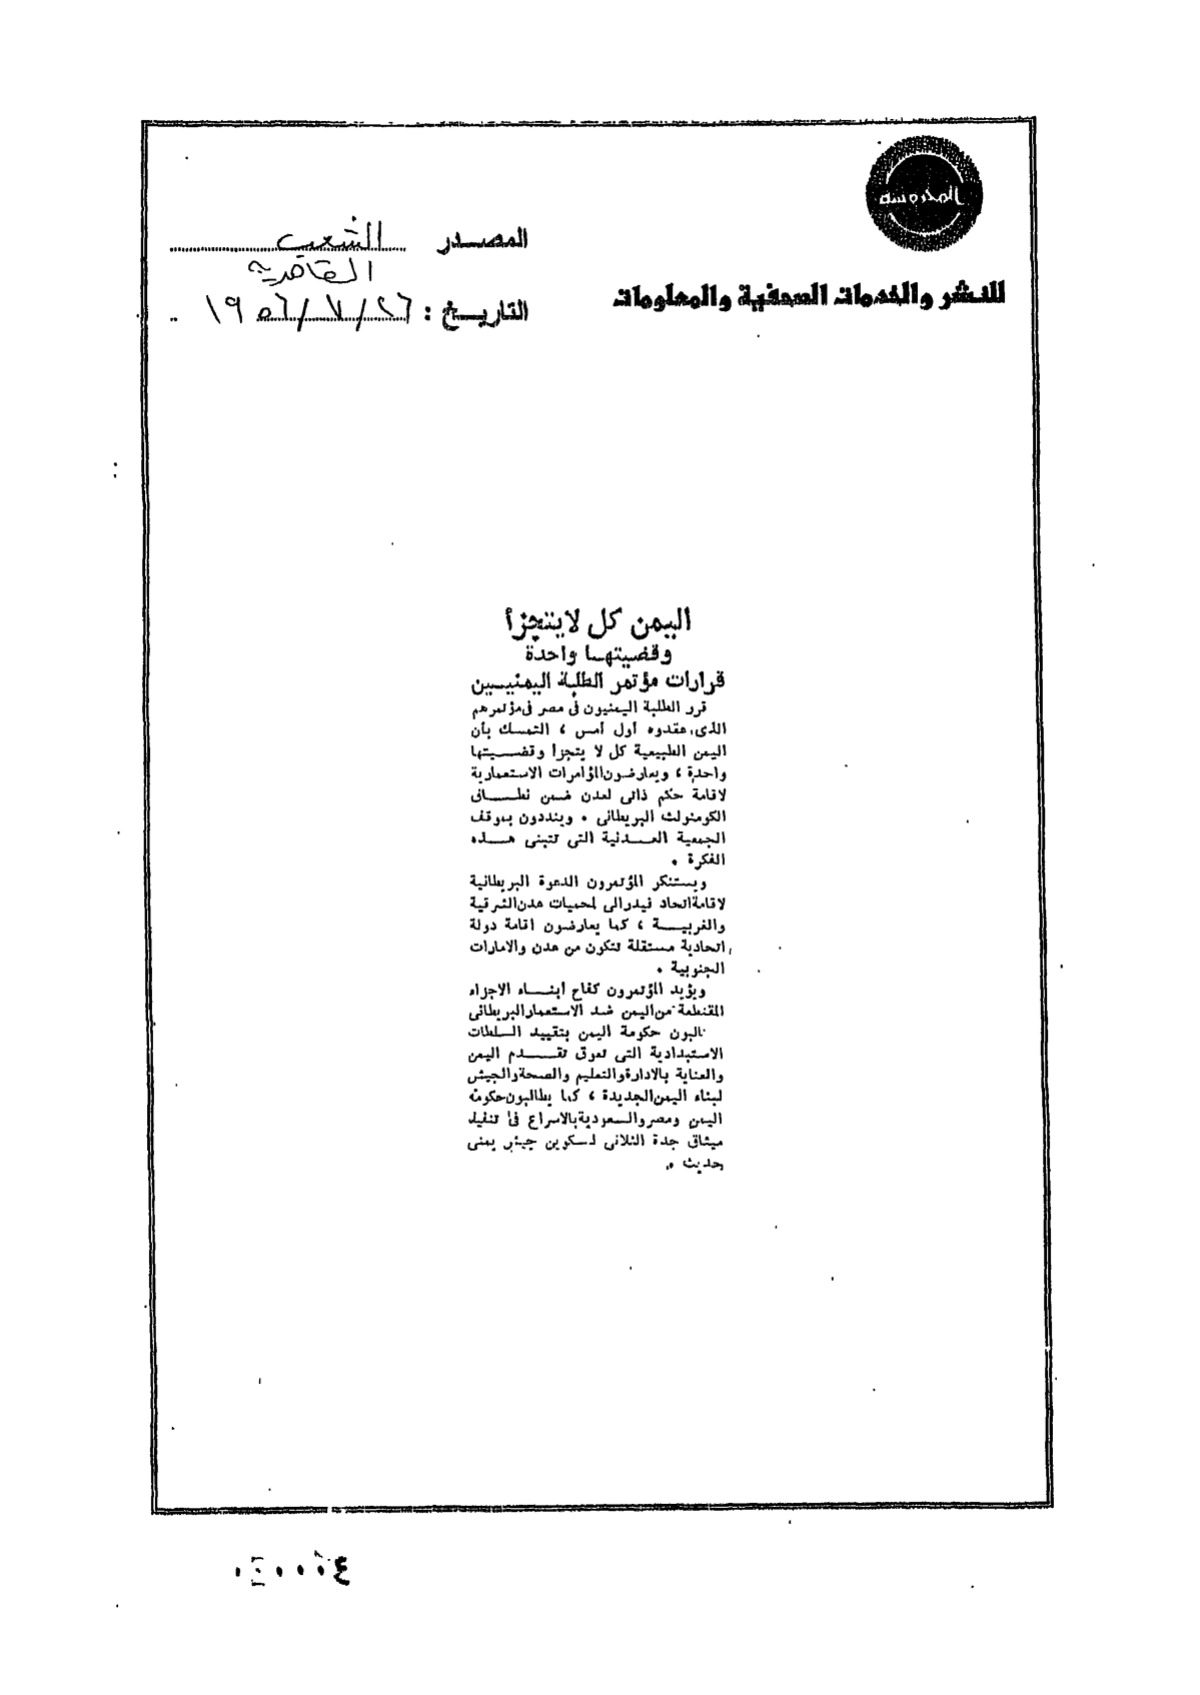 المحروسة
للنشر والخدمات الصحفية والمعلومات
المصدر الشعب
القاهرية
التاريخ : ٢٦/٧/١٩٥٦
اليمن كل لايتجزأ
وقضيتهما واحدة
قرارات مؤتمر الطلبة اليمنيين
قرر الطلبة اليمنيون فى مصر فى مؤتمرهم
الذى عقدوه أول أمس ، التمسك بأن
اليمن الطبيعية كل لا يتجزأ وقضيتها
واحدة ، ويعارضون المؤامرات الاستعمارية
لاقامة حكم ذاتى لعدن ضمن نطاق
الكومنولث البريطانى . وينددون بموقف
الجمعية العدنية التى تتبنى هذه
الفكرة .
ويستنكر المؤتمرون الدعوة البريطانية
لاقامة اتحاد فيدرالى لمحميات عدن الشرقية
والغربية ، كما يعارضون اقامة دولة
اتحادية مستقلة تتكون من عدن والامارات
الجنوبية .
ويؤيد المؤتمرون كفاح أبناء الاجزاء
المقتطعة من اليمن ضد الاستعمار البريطانى
البون حكومة اليمن بتقييد السلطات
الاستبدادية التى تعوق تقدم اليمن
والعناية بالادارة والتعليم والصحة والجيش
لبناء اليمن الجديدة ، كما يطالبون حكومة
اليمن ومصر والسعودية بالاسراع فى تنفيذ
ميثاق جدة الثلاثى لتكوين جيش يمنى
حديث .